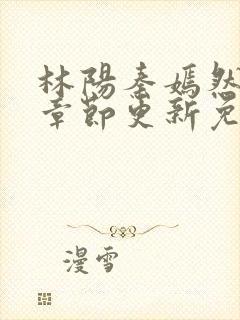 林陽秦嫣然
章節更新免
漫雪